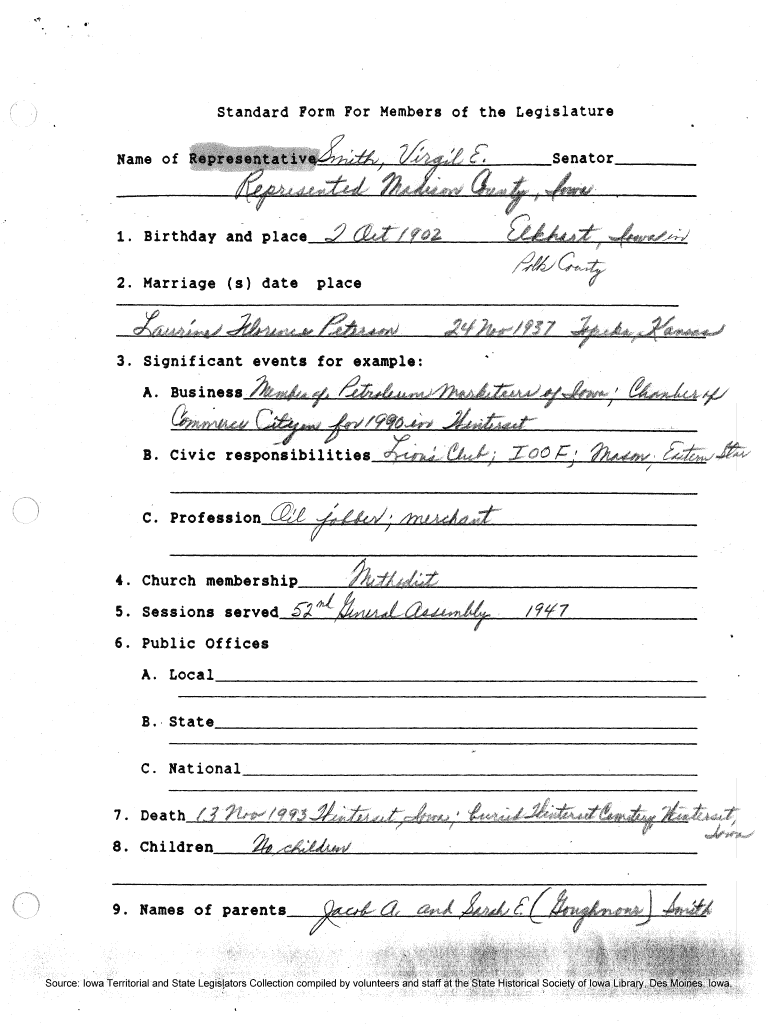 Standard Form For Members of the Legislature
Name of Representative Smith, Virgil E. Senator
Represented Madison County, Iowa
1. Birthday and place 2 Oct 1902 Elkhart, Iowa in
Polk County
2. Marriage (s) date place
Laurine Florence Peterson 24 Nov 1937 Topeka, Kansas
3. Significant events for example:
A. Business Member of Petroleum Marketeers of Iowa; Chamber of
Commerce Citizen for 1990 in Winterset
B. Civic responsibilities Lion's Club; IOOF; Mason; Eastern Star
C. Profession Oil jobber; merchant
4. Church membership Methodist
5. Sessions served 52nd General Assembly 1947
6. Public Offices
A. Local
B. State
C. National
7. Death 13 Nov 1993 Winterset, Iowa; buried Winterset Cemetery, Winterset,
Iowa
8. Children No children
9. Names of parents Jacob A. and Sarah E. (Goughnour) Smith
Source: Iowa Territorial and State Legislators Collection compiled by volunteers and staff at the State Historical Society of Iowa Library, Des Moines, Iowa.